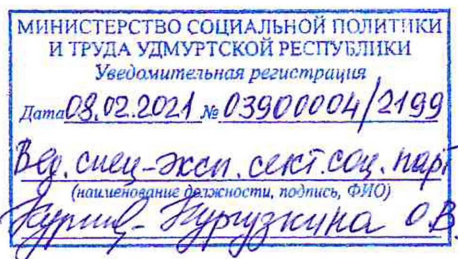 МИНИСТЕРСТВО СОЦИАЛЬНОЙ ПОЛИТИКИ
И ТРУДА УДМУРТСКОЙ РЕСПУБЛИКИ
Уведомительная регистрация
Дата 08.02.2021 № 03900004/2199
Вед. спец-эксп. сект. соц. парт
(наименование должности, подпись, ФИО)
Кургузкина О.В.